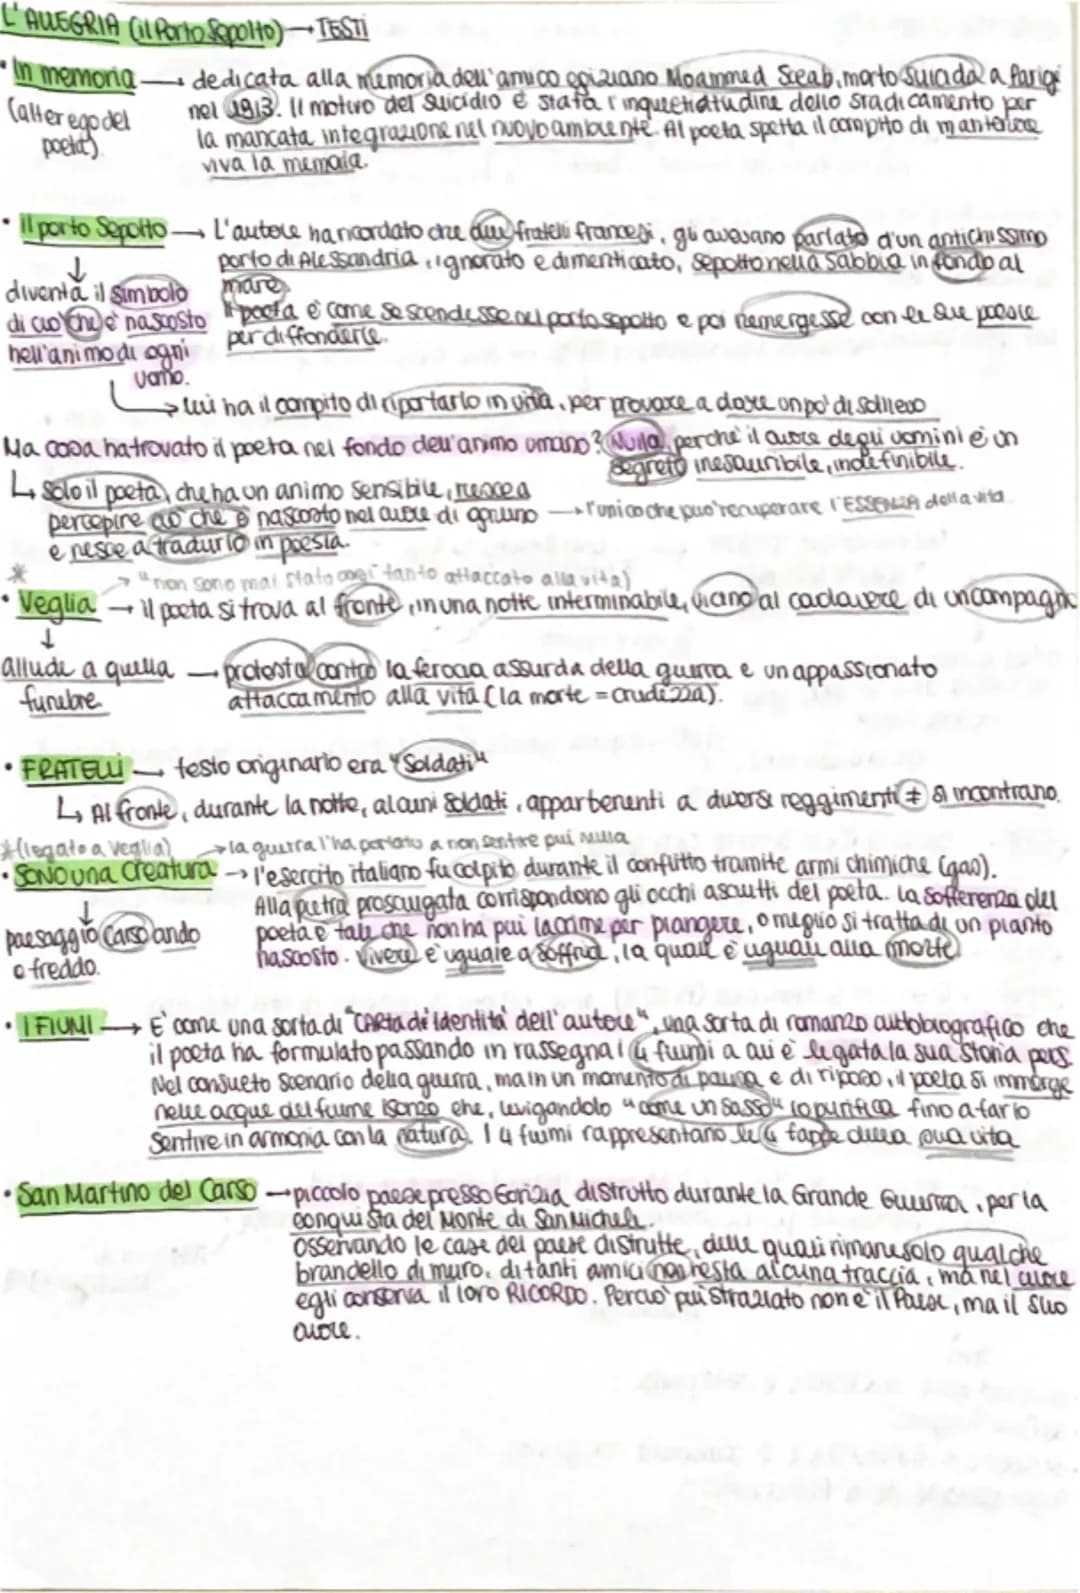 L'ALLEGRIA (il Porto Sepolto) → TESTI
• In memoria → dedicata alla memoria dell'amico egiziano Moammed Sceab, morto suicida a Parigi
(alter ego del poeta)
nel 1913. Il motivo del suicidio è stata l'inquietudine dello sradicamento per
la mancata integrazione nel nuovo ambiente. Al poeta spetta il compito di mantenere
viva la memoria.
• Il porto Sepolto → L'autore ha ricordato che due fratelli francesi, gli avevano parlato d'un antichissimo
porto di Alessandria, ignorato e dimenticato, sepolto nella sabbia in fondo al
mare.
↓
diventa il simbolo
di ciò che è nascosto
nell'animo di ogni
uomo.
Il poeta è come se scendesse nel porto sepolto e poi riemergesse con le sue poesie
per diffonderle.
↳ lui ha il compito di riportarlo in vita, per provare a dare un po' di sollievo
Ma cosa ha trovato il poeta nel fondo dell'animo umano? Nulla, perchè il cuore degli uomini è un
segreto inesauribile, indefinibile.
↳ Solo il poeta, che ha un animo sensibile, riesce a
percepire ciò che è nascosto nel cuore di ognuno → l'unico che può recuperare l'ESSENZA della vita.
e riesce a tradurlo in poesia.
* → "non sono mai stato così tanto attaccato alla vita)
• Veglia → il poeta si trova al fronte, in una notte interminabile, vicino al cadavere di un compagno
↓
allude a quella → protesta contro la ferocia assurda della guerra e un appassionato
funebre
attaccamento alla vita (la morte = crudezza).
• FRATELLI → testo originario era "Soldati"
↳ Al fronte, durante la notte, alcuni soldati, appartenenti a diversi reggimenti ≠ si incontrano.
*(legato a veglia) → la guerra l'ha portato a non sentire più nulla
• SONO una creatura → l'esercito italiano fu colpito durante il conflitto tramite armi chimiche (gas).
↓
paesaggio Carso arido
e freddo.
Alla pietra prosciugata corrispondono gli occhi asciutti del poeta. La sofferenza del
poeta è tale che non ha più lacrime per piangere, o meglio si tratta di un pianto
nascosto. Vivere è uguale a soffrire, la quale è uguale alla morte
• I FIUMI → E' come una sorta di "CARTA di Identità dell'autore", una sorta di romanzo autobiografico che
il poeta ha formulato passando in rassegna i 4 fiumi a cui è legata la sua storia pers.
Nel consueto scenario della guerra, ma in un momento di pausa e di riposo, il poeta si immerge
nelle acque del fiume Isonzo che, levigandolo "come un sasso" lo purifica fino a farlo
sentire in armonia con la natura. I 4 fiumi rappresentano le 4 tappe della sua vita
• San Martino del Carso → piccolo paese presso Gorizia distrutto durante la Grande Guerra, per la
conquista del Monte di San Michele.
Osservando le case del paese distrutte, delle quali rimane solo qualche
brandello di muro, di tanti amici non resta alcuna traccia, ma nel cuore
egli conserva il loro RICORDO. Perciò più straziato non è il Paese, ma il suo
cuore.